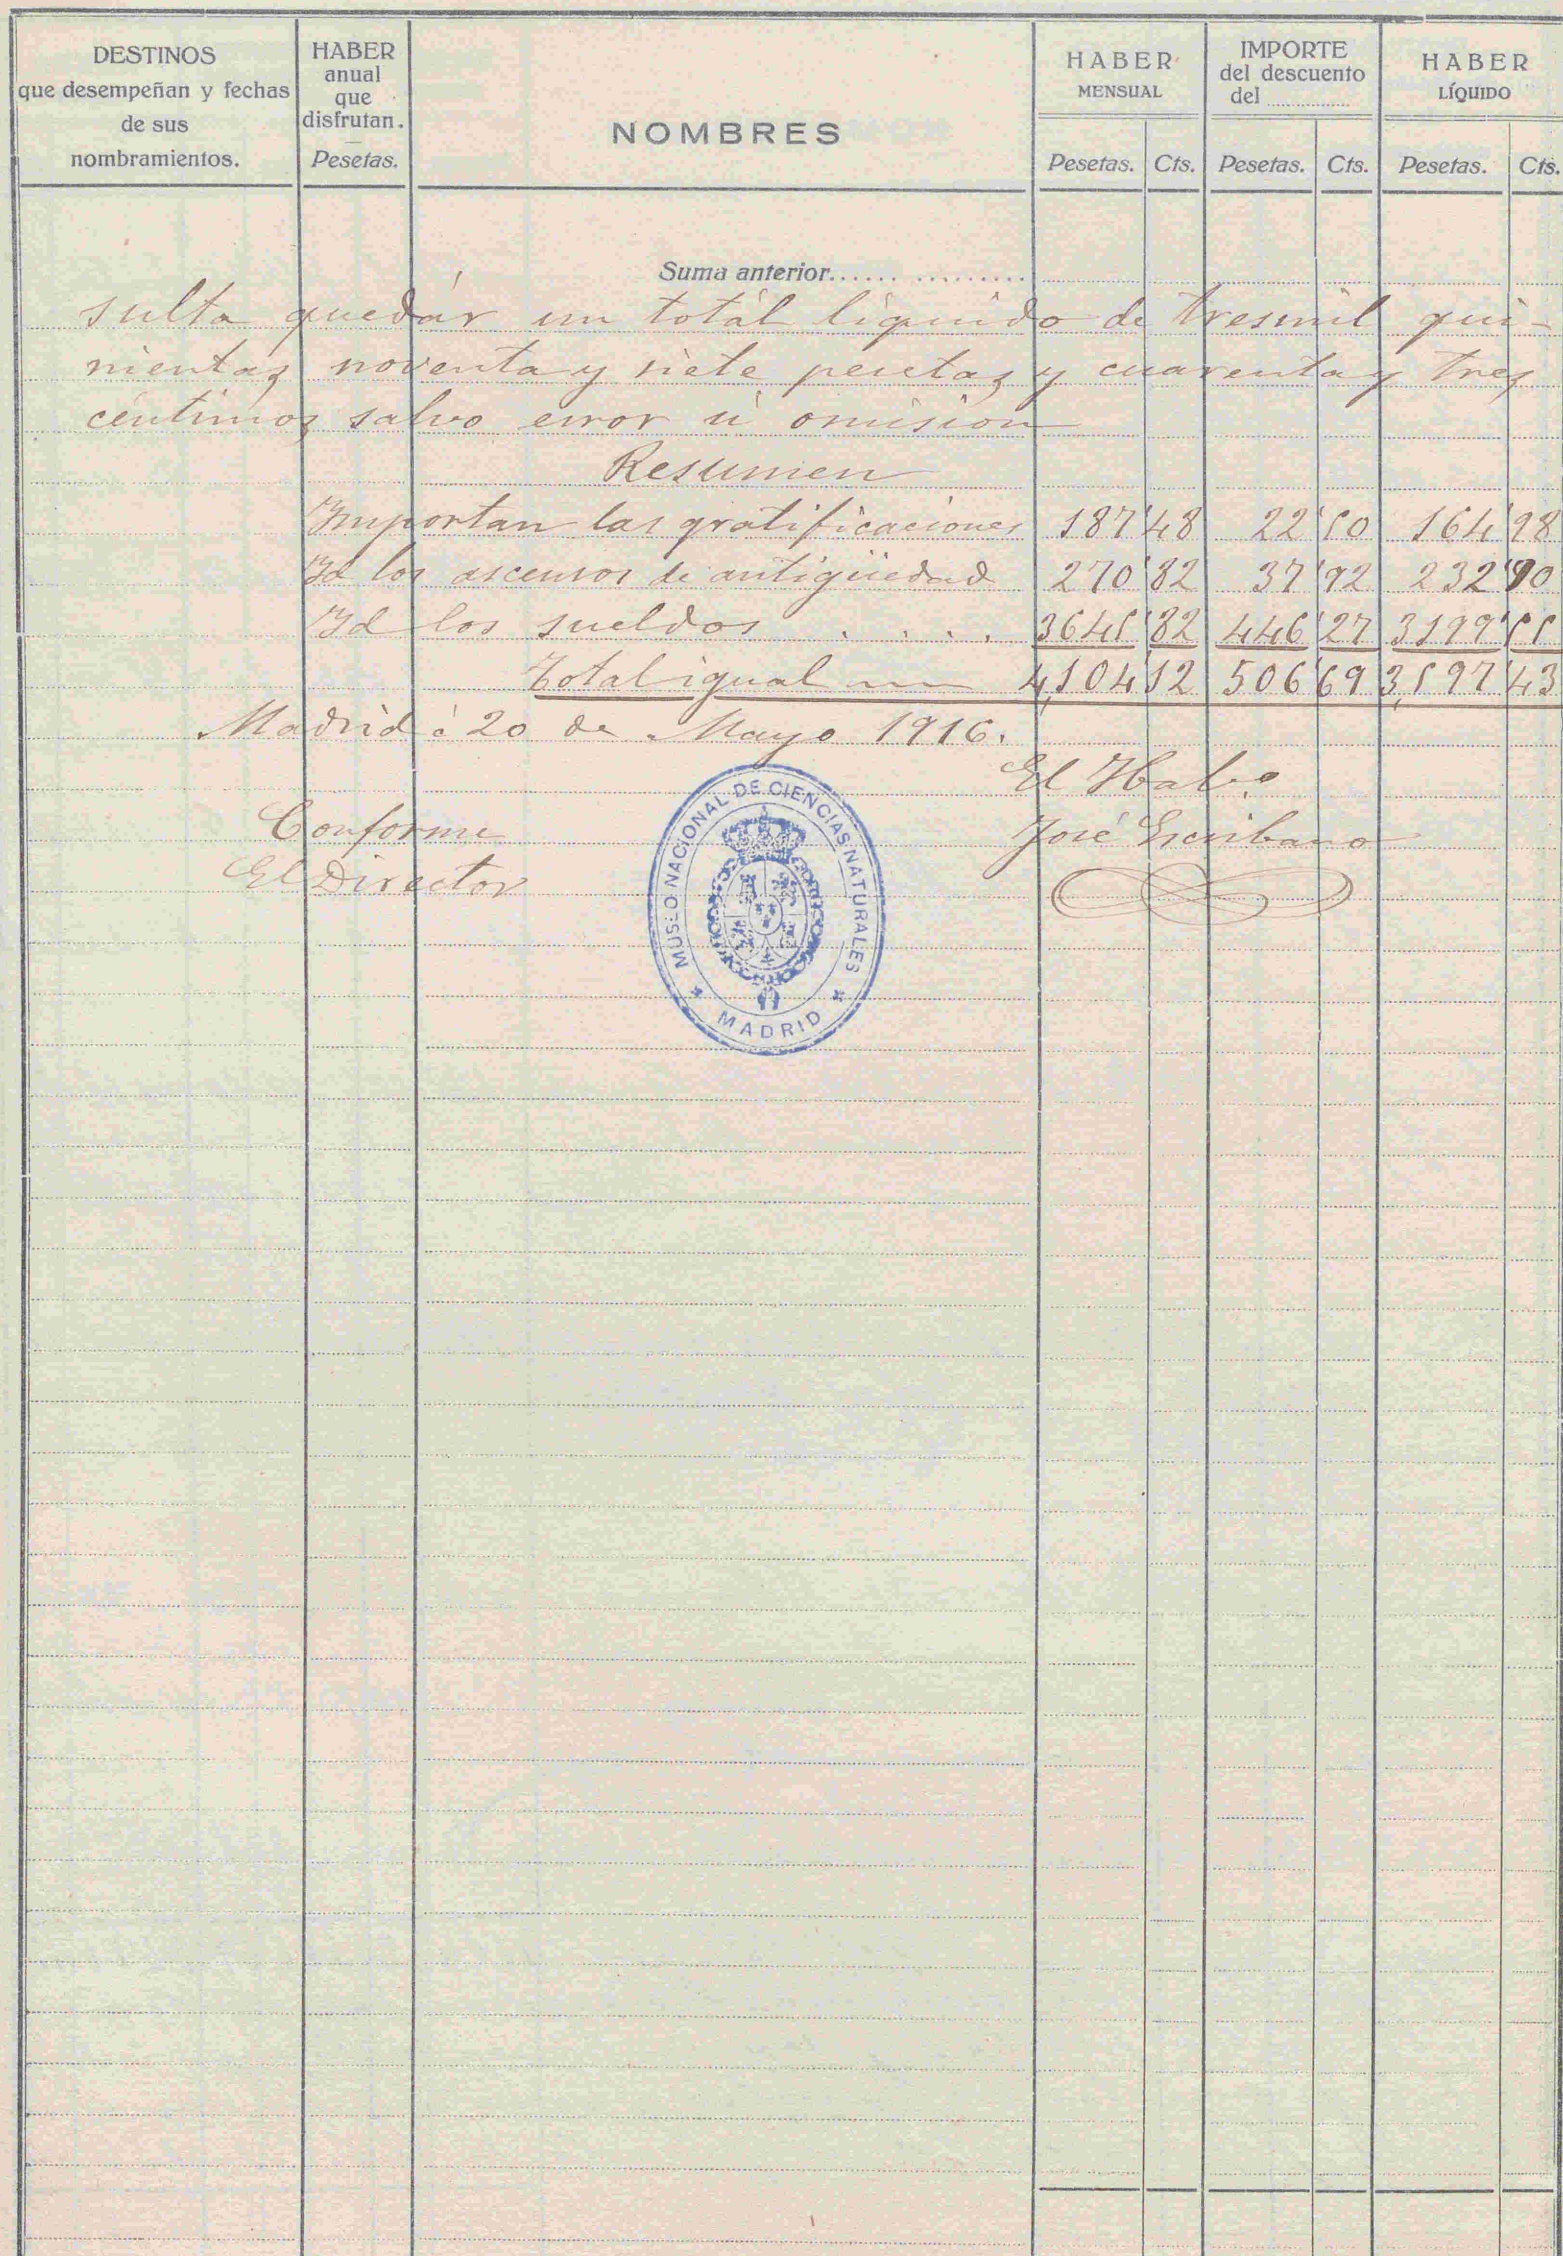 DESTINOS
que desempeñan y fechas
de sus
nombramientos.
HABER
anual
que
disfrutan.
Pesetas.
NOMBRES
HABER
MENSUAL
Pesetas. Cts.
IMPORTE
del descuento
del ............
Pesetas. Cts.
HABER
LÍQUIDO
Pesetas. Cts.
Suma anterior...... .........
sulta quedár un totál liquido de tresmil qui-
nientas noventa y siete pesetas y cuarenta y tres
céntimos salvo error ú omision
Resumen
Importan las gratificaciones 187'48 22'50 164'98
Id los ascensos de antigüedad 270'82 37'92 232'90
Id los sueldos . . . . 3645'82 446'27 3199'55
Total igual 4,104'12 506'69 3,597'43
Madrid á 20 de Mayo 1916.
El Habo
Conforme
José Escribano
El Director
MUSEO NACIONAL DE CIENCIAS NATURALES
MADRID